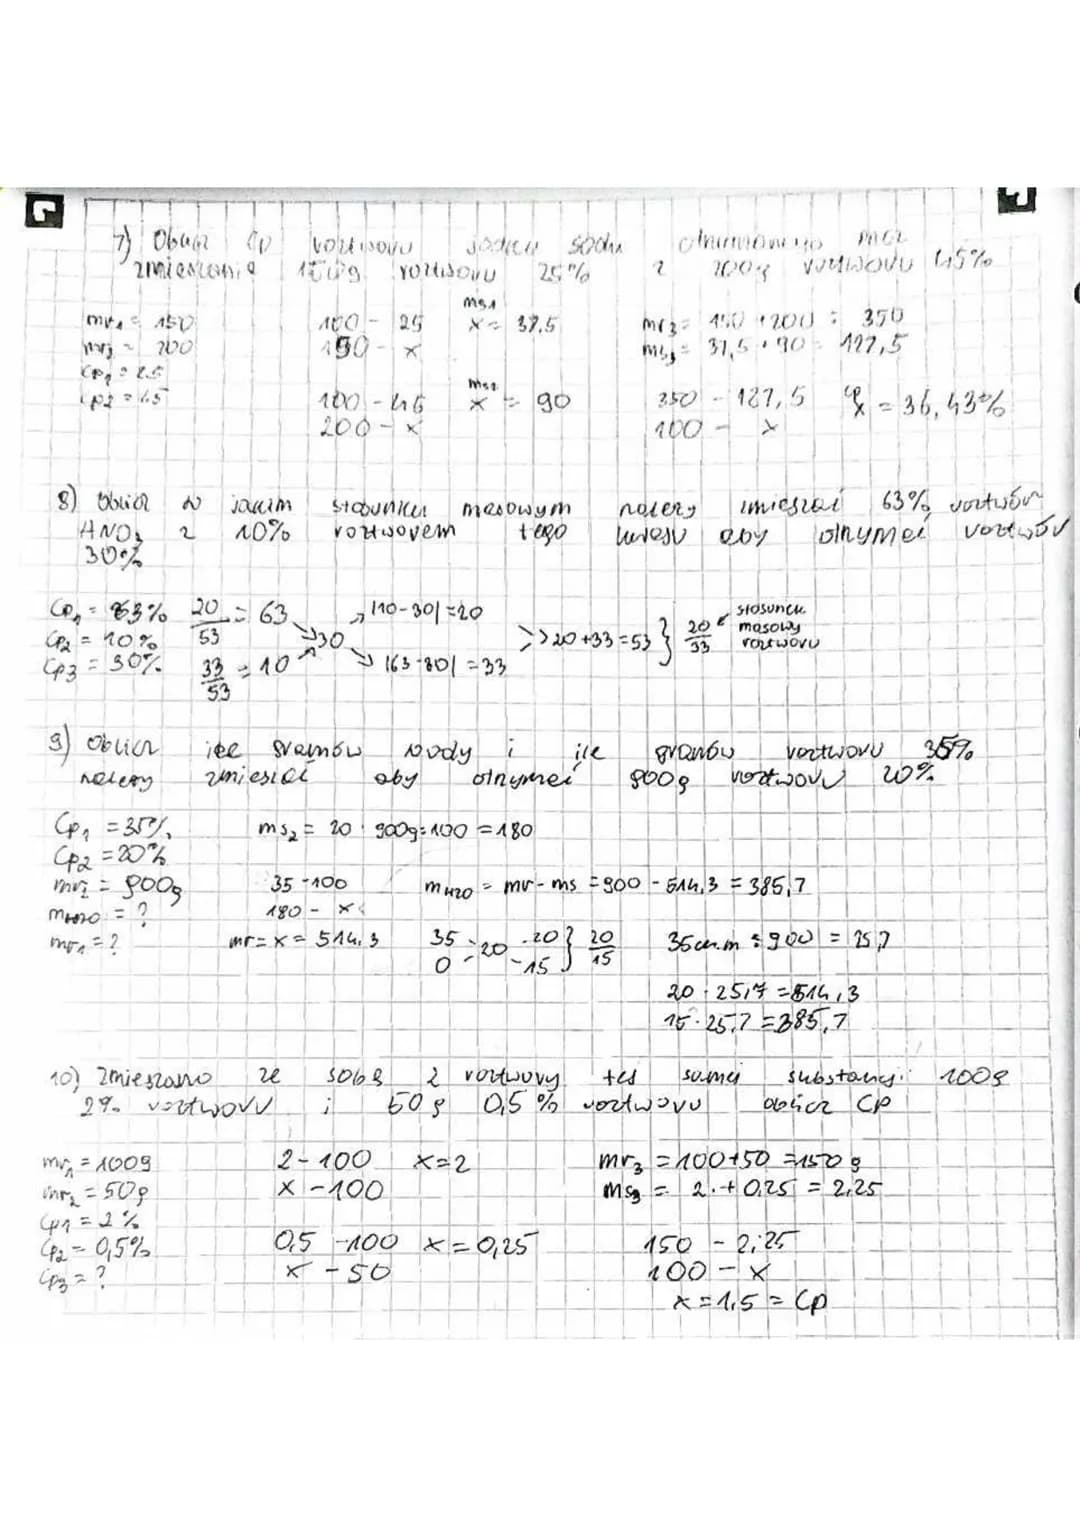 7) Oblicz Cp roztworu jodku sodu otrzymanego przez
zmieszanie 150g roztworu 25% z 200g roztworu 45%
mr1 = 150
mr2 = 200
Cp1 = 25
Cp2 = 45
100 - 25
150 - x
ms1
x = 37,5
100 - 45
200 - x
ms2
x = 90
mr3 = 150 + 200 = 350
ms3 = 37,5 + 90 = 127,5
350 - 127,5
100 - x
x = 36,43%
8) Oblicz w jakim stosunku masowym należy zmieszać 63% roztwór
HNO3 z 10% roztworem tego kwasu aby otrzymać roztwór
30%
Cp1 = 63%
Cp2 = 10%
Cp3 = 30%
20/53 = 63
33/53 = 10
30
|10-30| = 20
|63-30| = 33
>> 20 + 33 = 53 } 20/33
stosunek
masowy
roztworu
9) Oblicz ile gramów wody i ile gramów roztworu 35%
należy zmieszać aby otrzymać 900g roztworu 20%
Cp1 = 35%
Cp2 = 20%
mr2 = 900g
mH2O = ?
mr1 = ?
ms2 = 20 · 900g : 100 = 180
35 - 100
180 - x
mr = x = 514,3
mH2O = mr - ms = 900 - 514,3 = 385,7
35
0
20
- 20
- 15
} 20/15
35 cz.m : 900 = 25,7
20 · 25,7 = 514,3
15 · 25,7 = 385,7
10) Zmieszano ze sobą 2 roztwory tej samej substancji 100g
2% roztworu i 50g 0,5% roztworu oblicz CP
mr1 = 100g
mr2 = 50g
Cp1 = 2%
Cp2 = 0,5%
Cp3 = ?
2 - 100 x = 2
x - 100
0,5 - 100 x = 0,25
x - 50
mr3 = 100 + 50 = 150g
ms3 = 2 + 0,25 = 2,25
150 - 2,25
100 - x
x = 1,5 = Cp